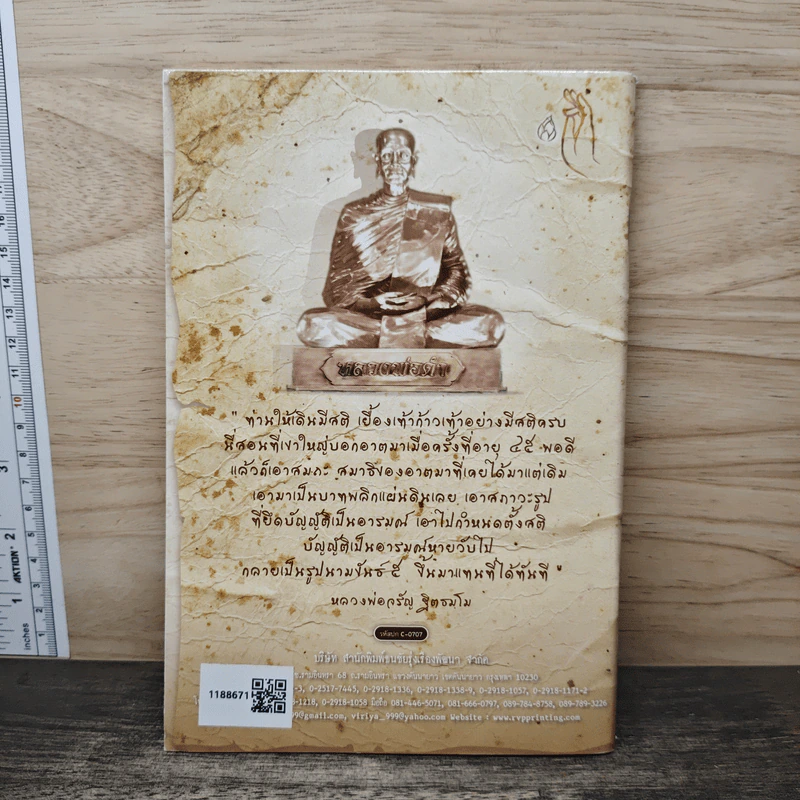 หลวงพ่อดำ
" ท่านให้เดินมีสติ เยื้องเท้าก้าวเท้าอย่างมีสติครบ
นี่สอนที่เขาใหญ่บอกอาตมาเมื่อครั้งที่อายุ ๔๕ พอดี
แล้วก็เอาสมถะ สมาธิของอาตมาที่เคยได้มาแต่เดิม
เอามาเป็นบาทพลิกแผ่นดินเลย เอาสภาวะรูป
ที่ยึดบัญญัติเป็นอารมณ์ เอาไปกำหนดตั้งสติ
บัญญัติเป็นอารมณ์หายวับไป
กลายเป็นรูปนามขันธ์ ๕ ขึ้นมาแทนที่ได้ทันที "
หลวงพ่อจรัญ ฐิตธมฺโม
รหัสปก C-0707
บริษัท สำนักพิมพ์ธนชบรุ่งเรืองพัฒนา จำกัด
ซ.รามอินทรา 68 ถ.รามอินทรา แขวงคันนายาว เขตคันนายาว กรุงเทพฯ 10230
0-2517-7445, 0-2918-1336, 0-2918-1338-9, 0-2918-1057, 0-2918-1171-2
-1218, 0-2918-1058 มือถือ 081-446-5071, 081-666-0797, 089-784-8758, 089-789-3226
@gmail.com, viriya_999@yahoo.com Website : www.rvpprinting.com
1188671
inches
AKTION
1
2
10
11
12
13
14
15
16